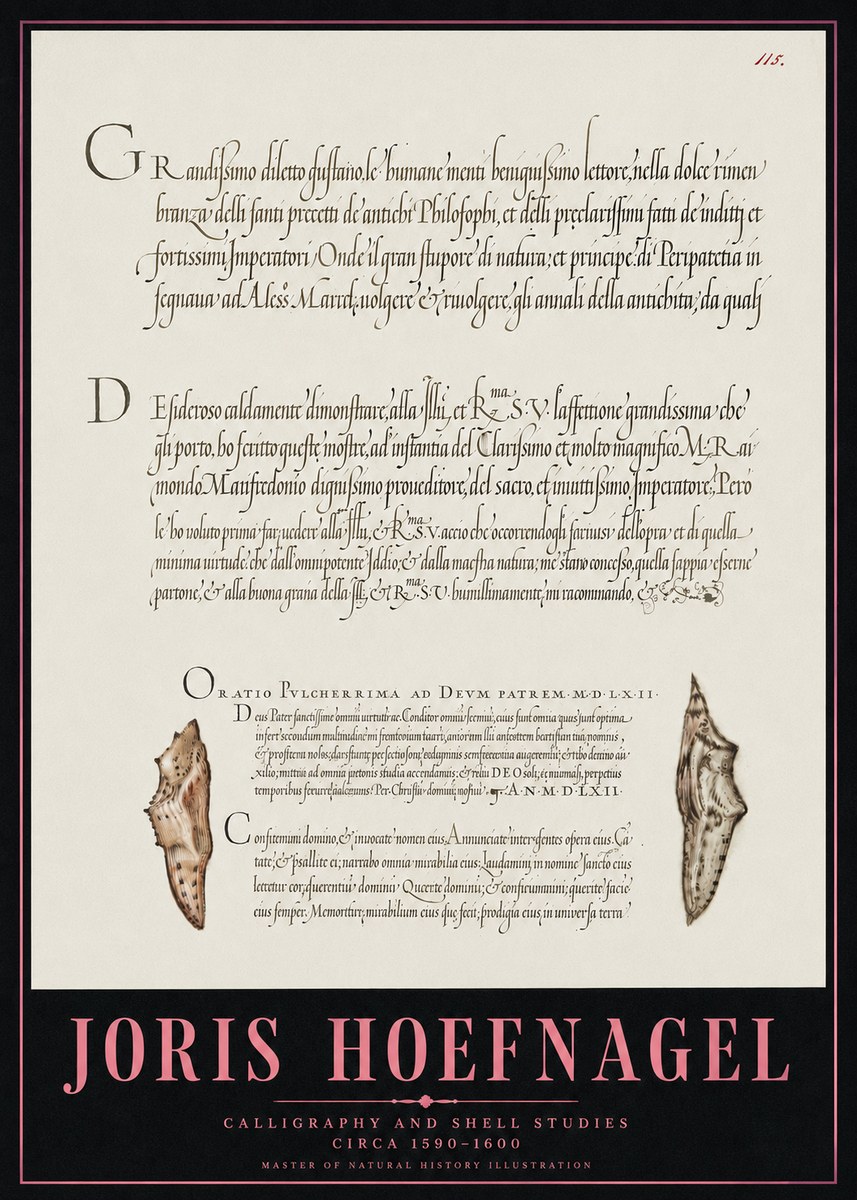 115.
GRandißimo diletto gustano le humane menti benignißimo lettore, nella dolce rimen
branza delli santi precetti de antichi Philosophi, et delli preclarissimi fatti de inditti et
fortissimi Imperatori, Onde il gran stupore di natura, et principe di Peripatetia in
segnaua ad Aless.o volgere & riuolgere, gli annali della antichita, da quali
DEsideroso caldamente dimonstrare, alla Illu, et R.ma S. V. l'affettione grandissima che
gli porto, ho scritto queste mostre, ad instantia del Clarißimo et molto magnifico M. R. ai
mondo Manfredonio dignißimo proueditore, del sacro, et inuittißimo Imperatore, Però
le ho voluto prima far uedere alla Illu, & R.ma S. V. accio che occorrendogli seruirsi dell'opra et di quella
minima uirtude che dall'omnipotente Iddio, & dalla maestra natura, me stano concesso, quella sappia esserne
partone, & alla buona gratia della Ill. & R.ma S. V. humillimamente, mi racommando, &
ORATIO PVLCHERRIMA AD DEVM PATREM·M·D·L·X·II·
Deus Pater omniu Conditor omniu cuius sunt omnia optima
&
ad omnia studia accendamus; & DEO soli, perpetius
temporibus Per Christu dominu A·N·M·D·LXII·
Confitemini domino, & inuocate nomen eius, Annunciate inter gentes opera eius. Ca
tate, & psallite ei; narrabo omnia mirabilia eius: laudamini in nomine sancto eius
letetur cor, querentiu dominu Querite dominu; & confirmamini; querite facie
eius semper. mirabilium eius que fecit; prodigia eius, in uniuersa terra
JORIS HOEFNAGEL
CALLIGRAPHY AND SHELL STUDIES
CIRCA 1590–1600
MASTER OF NATURAL HISTORY ILLUSTRATION